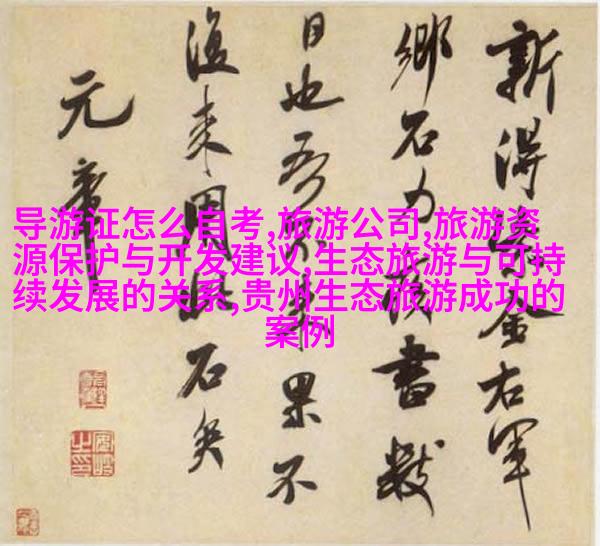 导游证怎么自考,旅游公司,旅游资
源保护与开发建议,生态旅游与可持
续发展的关系,贵州生态旅游成功的
案例
新得紫金右軍
鄉石力疾書數
日也吾不來果不
復来用此石矣
元章